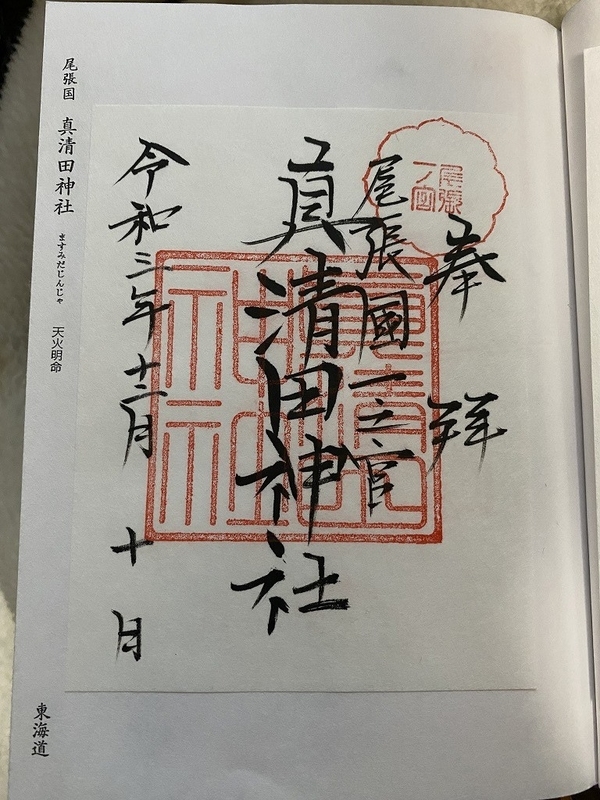 奉拝
尾張
一ノ宮
尾張國一之宮
真清田神社
令和三年十二月十日
尾張国 真清田神社 ますみだじんじゃ 天火明命
東海道